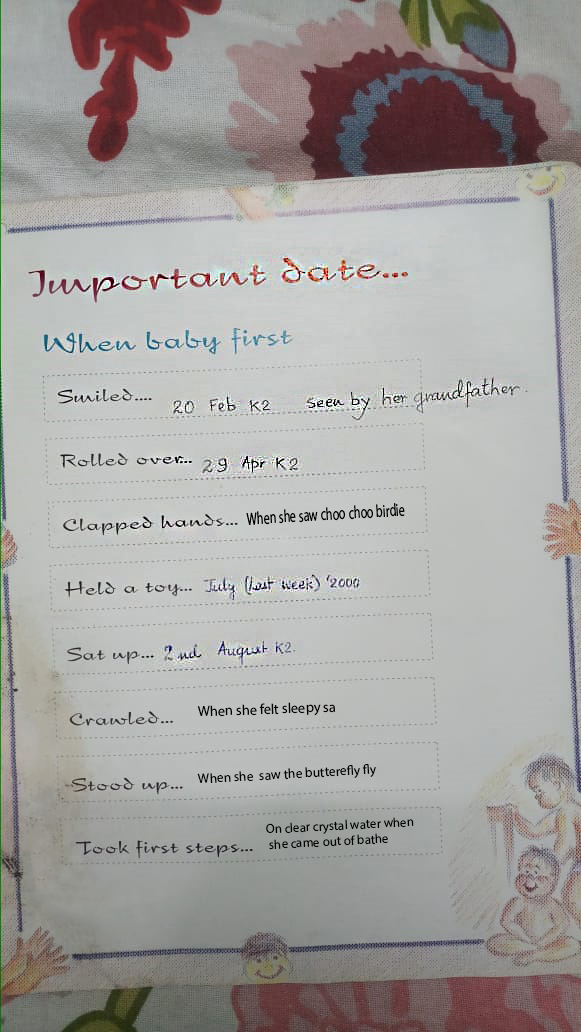 Important date...
When baby first
Smiled.... 20 Feb K2 seen by her grandfather.
Rolled over... 29 Apr K2
Clapped hands... When she saw choo choo birdie
Held a toy... July (last week) '2000
Sat up... 2nd August K2.
Crawled... When she felt sleepy sa
Stood up... When she saw the butterefly fly
Took first steps... On clear crystal water when
she came out of bathe